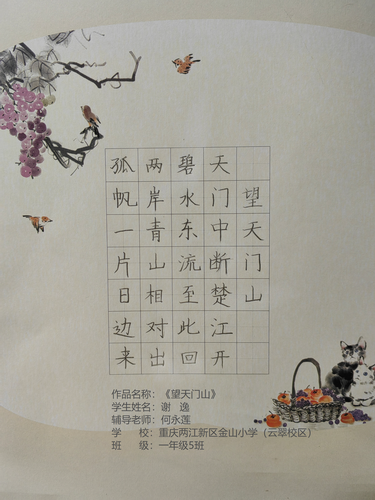 望天门山
天门中断楚江开
碧水东流至此回
两岸青山相对出
孤帆一片日边来
作品名称：《望天门山》
学生姓名：谢 逸
辅导老师：何永莲
学 校：重庆两江新区金山小学（云翠校区）
班 级：一年级5班